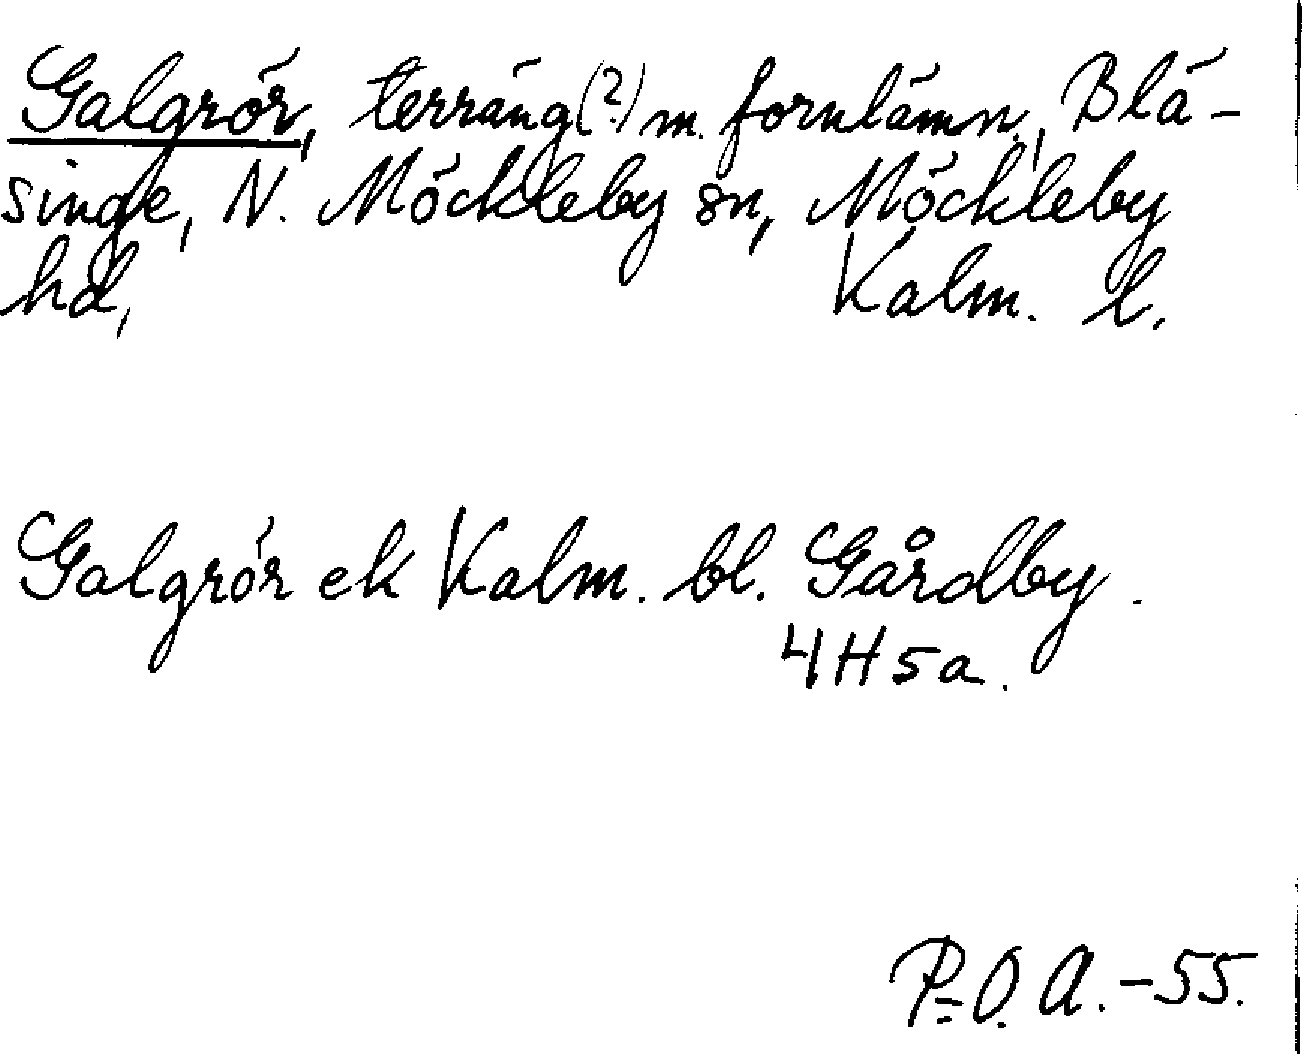 Galgrör, terräng (?) m. fornlämn., Blä-
singe, N. Möckleby sn, Möckleby
hd, Kalm. l.
Galgrör ek Kalm. bl. Gårdby.
4H5a.
P.O.A.-55.